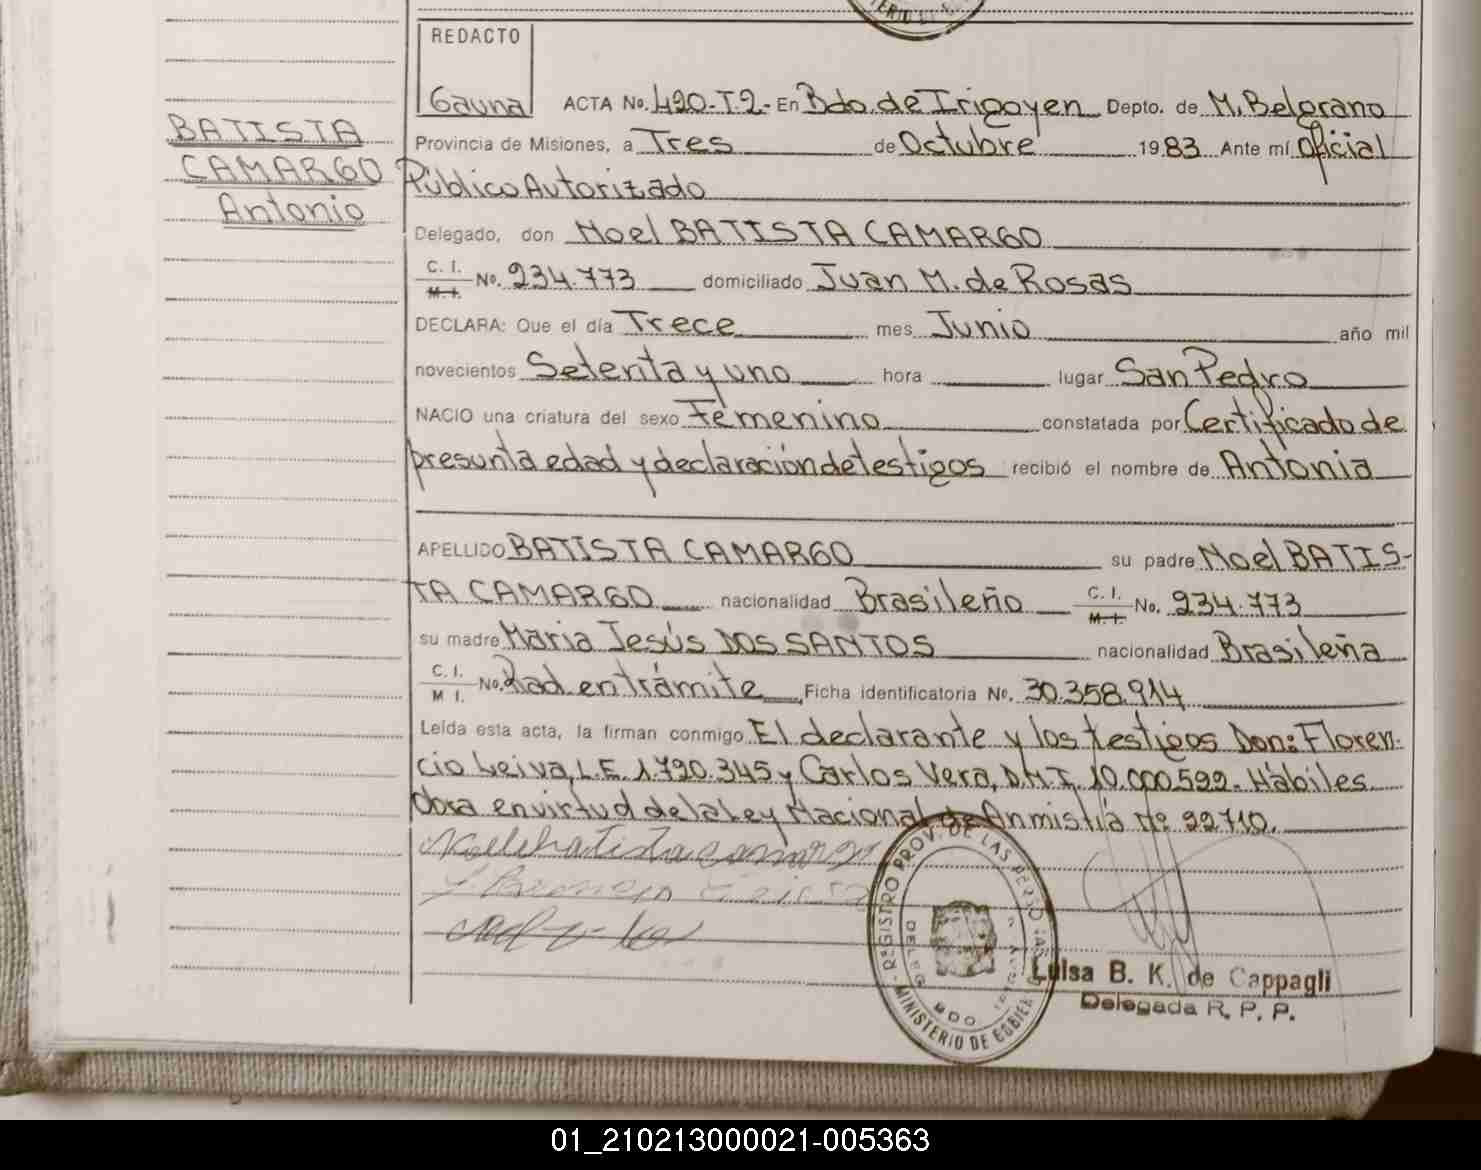 REDACTO
Gauna
ACTA No. 420-T.2- En Bdo. de Irigoyen Depto. de M. Belgrano
BATISTA
CAMARGO
Antonio
Provincia de Misiones, a Tres de Octubre 1983 Ante mí Oficial
Público Autorizado
Delegado, don Noel BATISTA CAMARGO
C. I. M. I. No. 234.773 domiciliado Juan M. de Rosas
DECLARA: Que el día Trece mes Junio año mil
novecientos Setenta y uno hora lugar San Pedro
NACIO una criatura del sexo Femenino constatada por Certificado de
presunta edad y declaración de testigos recibió el nombre de Antonia
APELLIDO BATISTA CAMARGO su padre Noel BATIS-
TA CAMARGO nacionalidad Brasileño C. I. M. I. No. 234.773
su madre Maria Jesús DOS SANTOS nacionalidad Brasileña
C. I. M I. No. Rad en trámite Ficha identificatoria No. 30.358.914
Leída esta acta, la firman conmigo El declarante y los testigos Don: Floren-
cio Leiva, L.E. 1.790.345 y Carlos Vera, D.N.I. 10.000.592.- Hábiles
Obra en virtud de la Ley Nacional de Anmistía Nº 22710.
REGISTRO PROV. DE LAS PERSONAS
MINISTERIO DE GOBIER
Luisa B. K. de Cappagli
Delegada R. P. P.
01_210213000021-005363